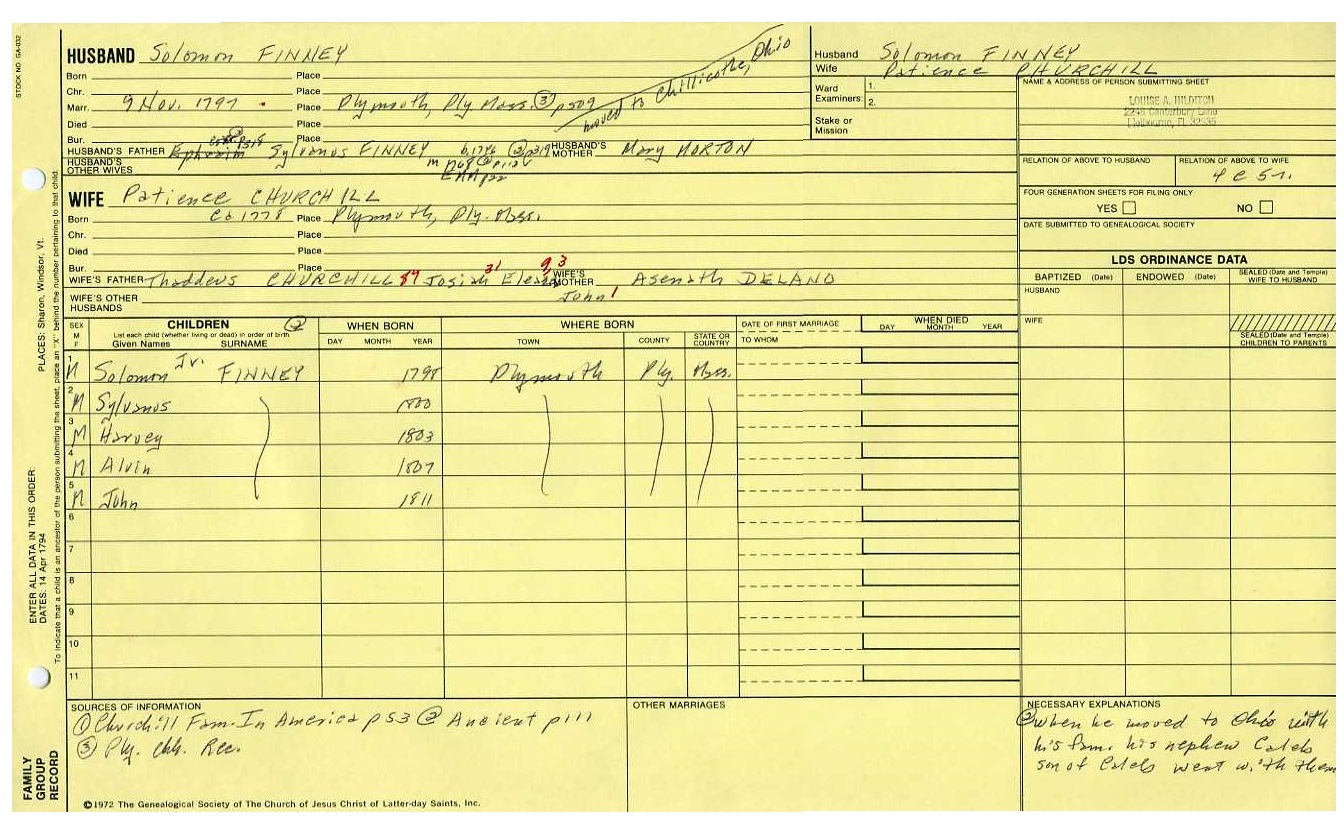 STOCK NO. GA-032
HUSBAND Solomon FINNEY
Born Place
Chr. Place
Marr. 9 Nov. 1797 Place Plymouth, Ply Mass. ③ p509
moved to Chillicothe, Ohio
Died Place
Bur. Place
HUSBAND'S FATHER Ephraim Sylvanus FINNEY HUSBAND'S MOTHER Mary MORTON
HUSBAND'S OTHER WIVES
Husband Solomon FINNEY
Wife Patience CHURCHILL
Ward Examiners: 1.
2.
Stake or Mission
NAME & ADDRESS OF PERSON SUBMITTING SHEET
LOUISE A. HILDITCH
Melbourne, FL
RELATION OF ABOVE TO HUSBAND
RELATION OF ABOVE TO WIFE
FOUR GENERATION SHEETS FOR FILING ONLY
YES NO
DATE SUBMITTED TO GENEALOGICAL SOCIETY
WIFE Patience CHURCHILL
Born Ca 1778 Place Plymouth, Ply. Mass.
Chr. Place
Died Place
Bur. Place
WIFE'S FATHER Thaddeus CHURCHILL Josiah WIFE'S MOTHER Asenath DELANO
John 1
WIFE'S OTHER HUSBANDS
LDS ORDINANCE DATA
BAPTIZED (Date) ENDOWED (Date) SEALED (Date and Temple) WIFE TO HUSBAND
HUSBAND
WIFE
SEALED (Date and Temple) CHILDREN TO PARENTS
SEX M F
CHILDREN ②
List each child (whether living or dead) in order of birth
Given Names SURNAME
WHEN BORN
DAY MONTH YEAR
WHERE BORN
TOWN COUNTY STATE OR COUNTRY
DATE OF FIRST MARRIAGE
TO WHOM
WHEN DIED
DAY MONTH YEAR
1 M Solomon Jr. FINNEY 1798 Plymouth Ply. Mass.
2 M Sylvanus 1800
3 M Harvey 1803
4 M Alvin 1807
5 M John 1811
6
7
8
9
10
11
SOURCES OF INFORMATION
① Churchill Fam. In America p53 ② Ancient p111
③ Ply. chh. Rec.
OTHER MARRIAGES
NECESSARY EXPLANATIONS
② when he moved to Ohio with
his fam. his nephew Caleb
son of Caleb went with them
©1972 The Genealogical Society of The Church of Jesus Christ of Latter-day Saints, Inc.
FAMILY GROUP RECORD
ENTER ALL DATA IN THIS ORDER:
DATES: 14 Apr 1794
PLACES: Sharon, Windsor, Vt.
To indicate that a child is an ancestor of the person submitting the sheet, place an "X" behind the number pertaining to that child.